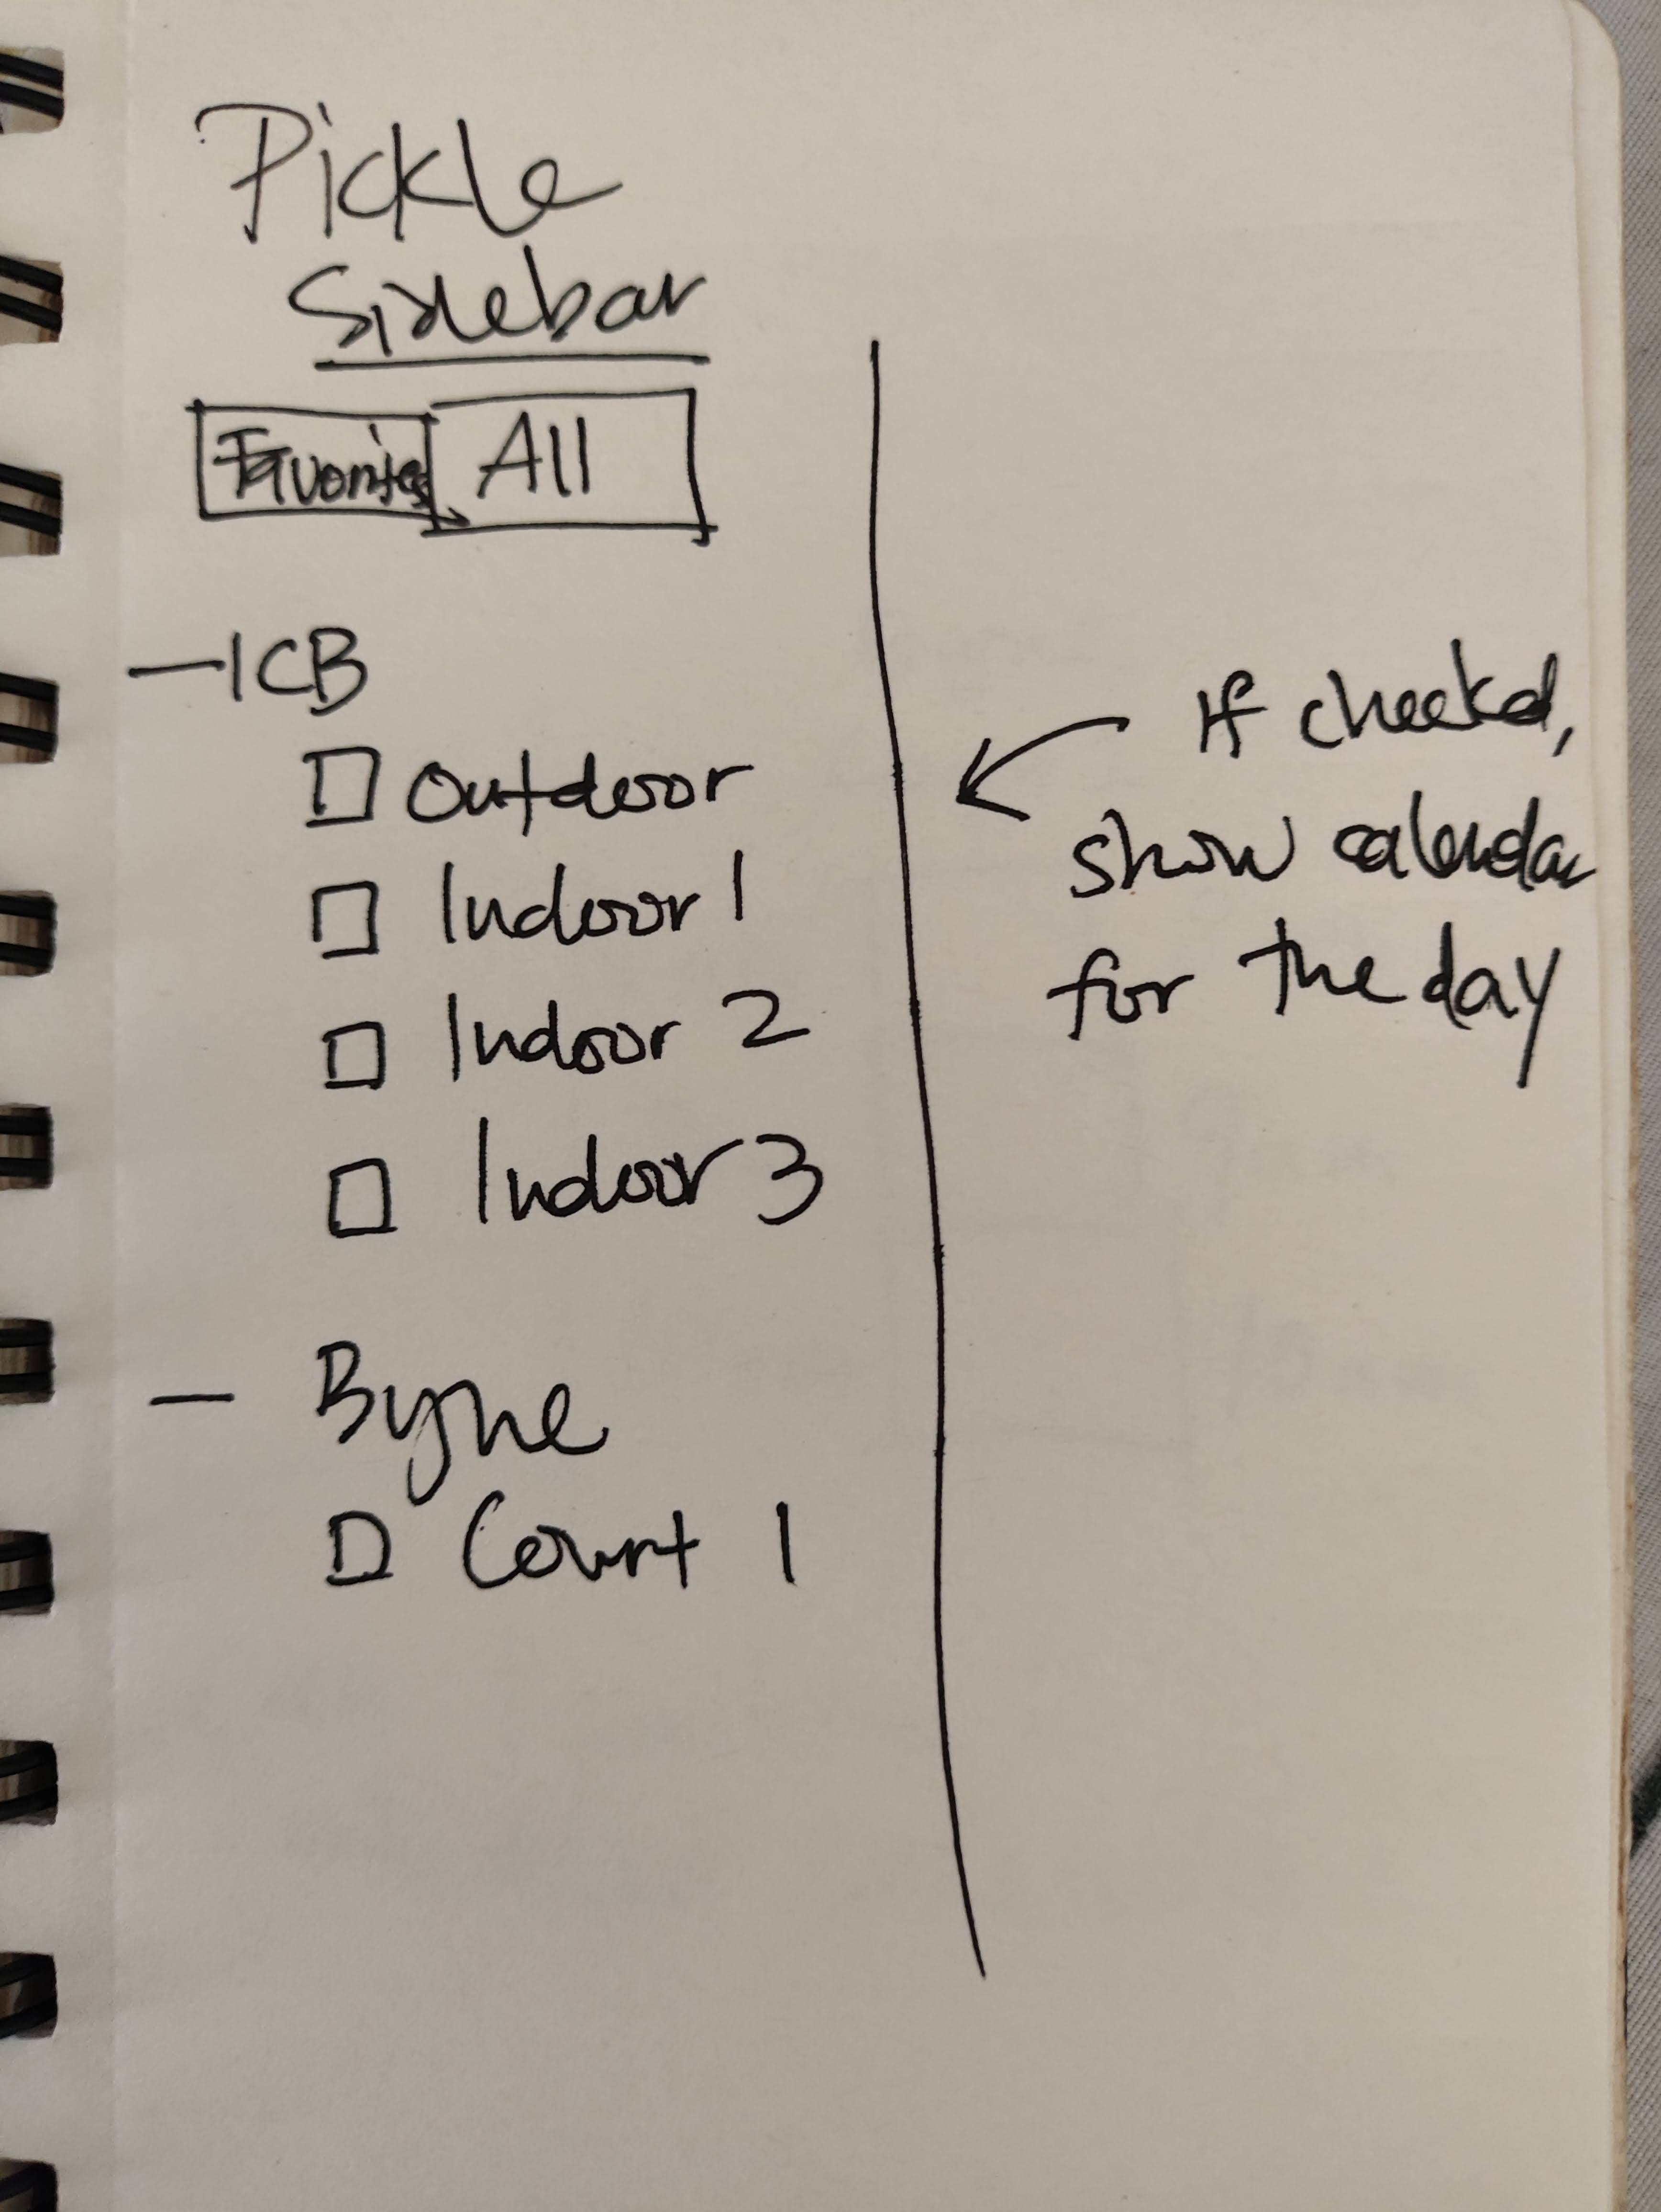 Pickle
Sidebar
Favorites All
— ICB
Outdoor
Indoor 1
Indoor 2
Indoor 3
— Byne
Court 1
If checked,
show calendar
for the day